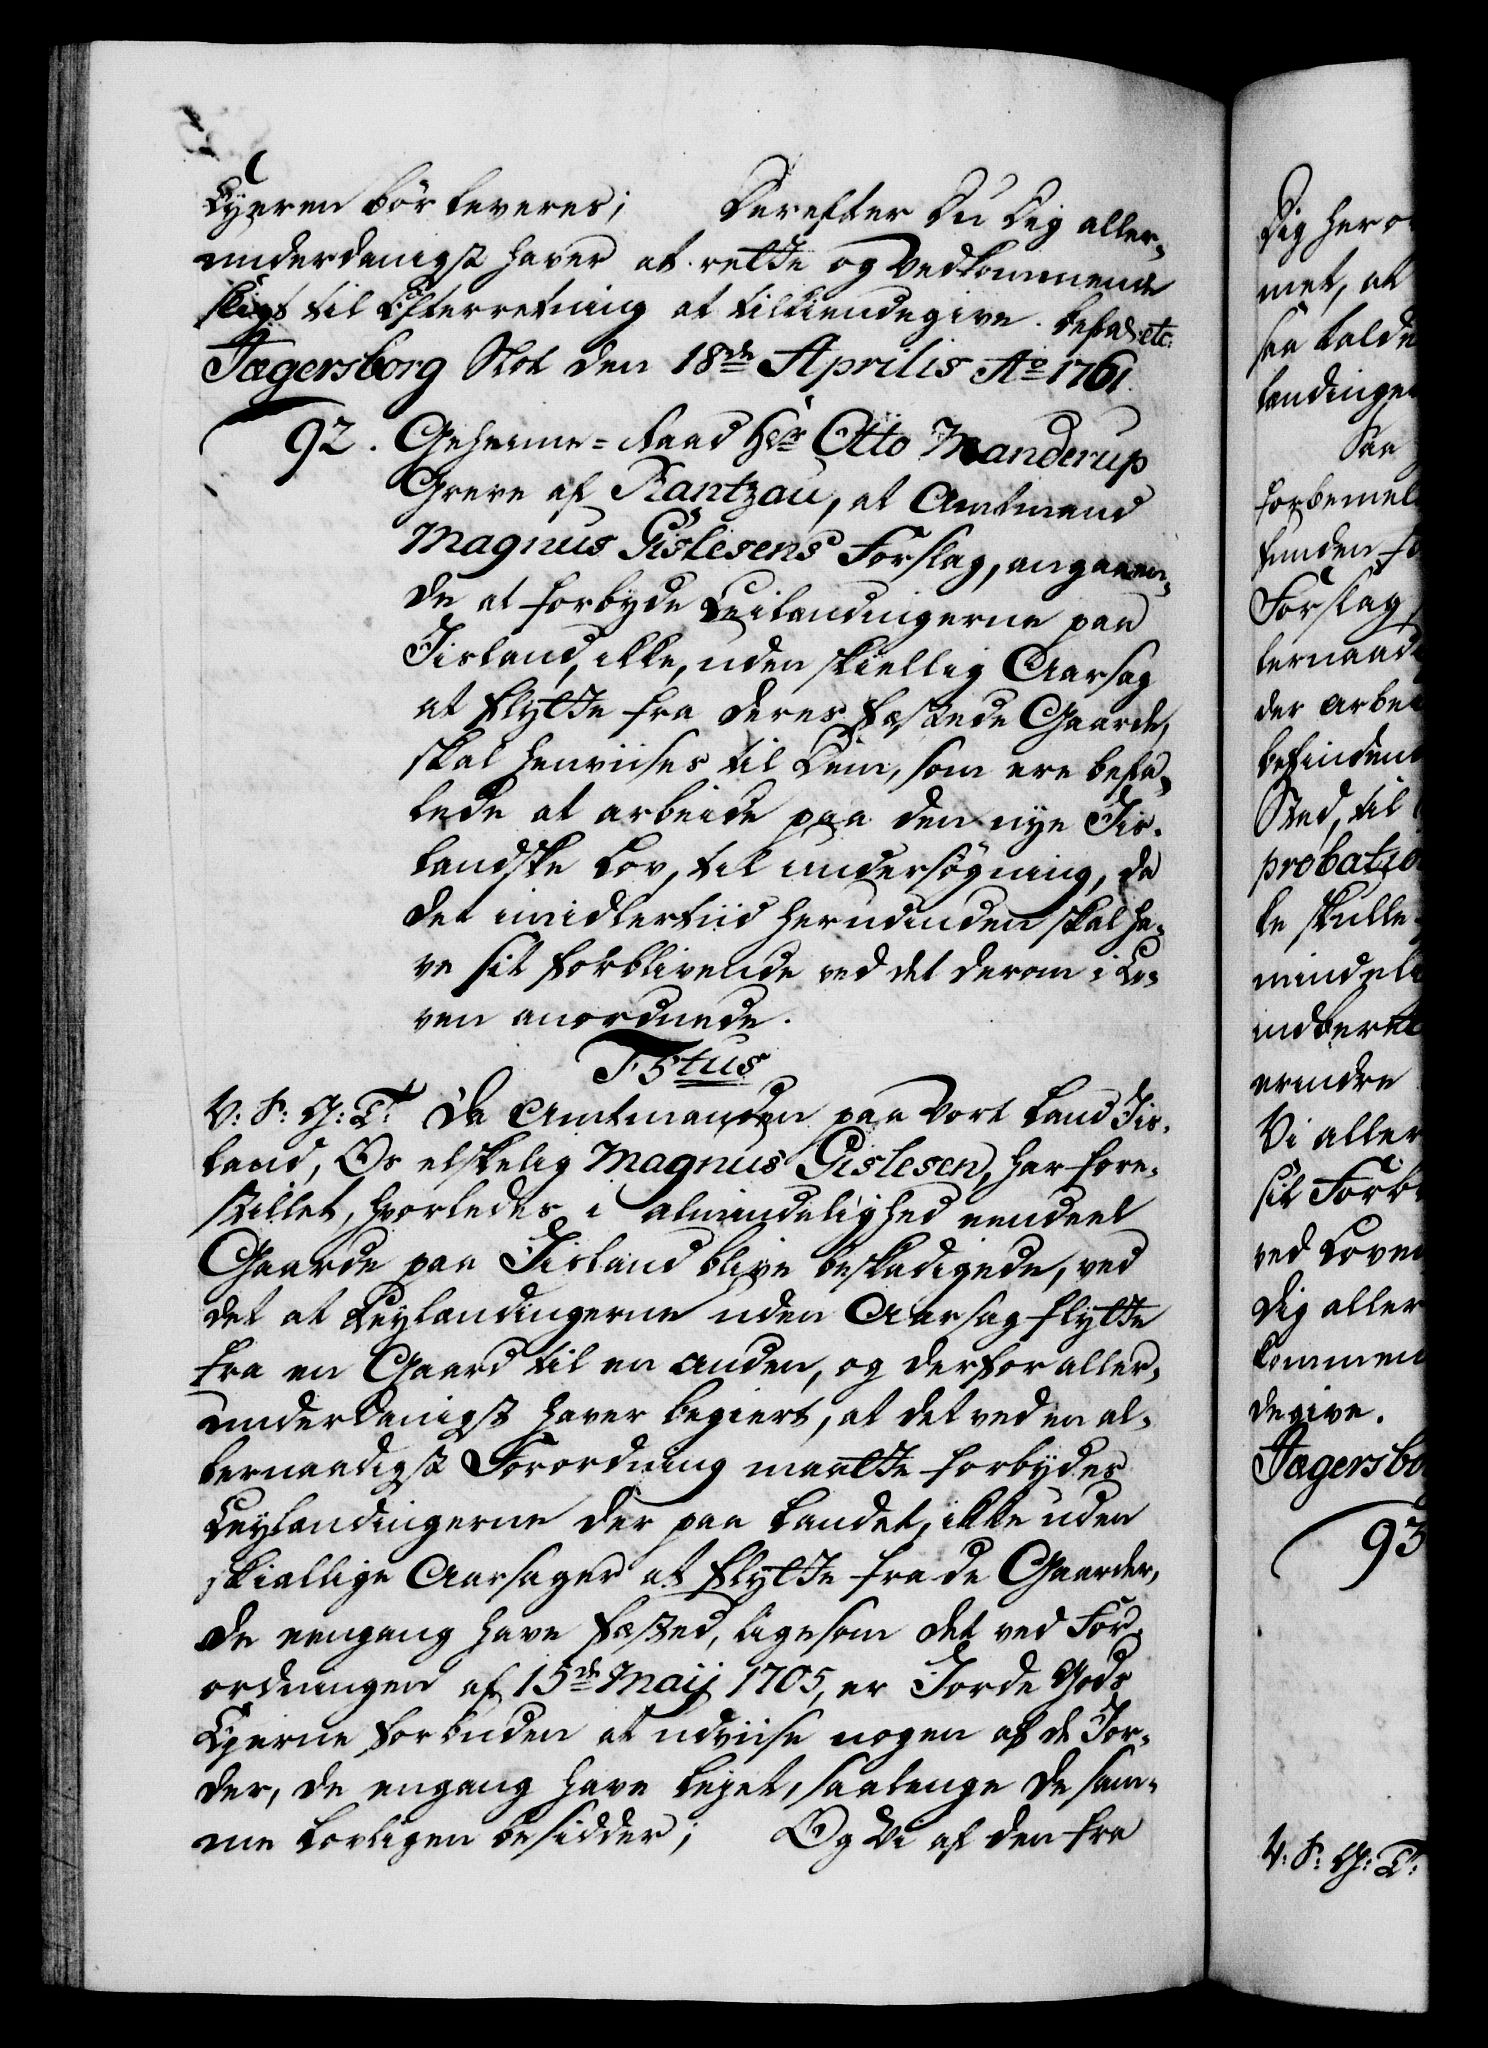 Eyeren bör leveres; Derefter Du Dig aller-
underdanigst haver at rette og Vedkommende
sligt til Efterretning at tilkiendegive. befal: etc:
Jægersborg Slot den 18de Aprilis Ao 1761.
92. Geheime-Raad Hr Otto Manderup
Greve af Rantzau, at Amtmand
Magnus Gislesens Forslag, angaaen-
de at forbyde Leilændingerne paa
Iisland, ikke, uden skiellig Aarsag
at flytte fra deres fæstede Gaarde,
skal henviises til Dem, som ere befa-
lede at arbeide paa den nye Iis-
landske Lov, til undersøgning, da
det imidlertiid herudinden skal ha-
ve sit forblivende ved det derom i Lo-
ven anordnede.
F5tus
V: S: G: T: Da Amtmanden paa Vort Land Iis-
land, Os elskelig Magnus Gislesen, har fore-
stillet, hvorledes i almindelighed eendeel
Gaarde paa Iisland blive beskadigede, ved
det at Leylændingerne uden Aarsag flytte
fra en Gaard til en anden, og derfor aller-
underdanigst haver begiert, at det ved en al-
lernaadigst Forordning maatte forbydes
Leylændingerne der paa Landet, ikke uden
skiellige Aarsager at flytte fra de Gaarder,
de eengang have fæsted, ligesom det ved For-
ordningen af 15de Maij 1705, er Jorde Gods
Ejerne forbuden at udviise nogen af de Jor-
der, de engang have lejet, saalænge de sam-
me lovligen besidder; Og Vi af den fra
Dig her o
met, at
saa kalde
lændinge
Saa
forbemel
funden fo
Forslag
lernaad
der arbei
befinden
Sted, til
probatio
te skulle
mindel
indberet
erindre
Vi aller
sit Forb
ved Loven
Dig aller
kommen
degive.
Jægersbo
93
V: S: G: T: